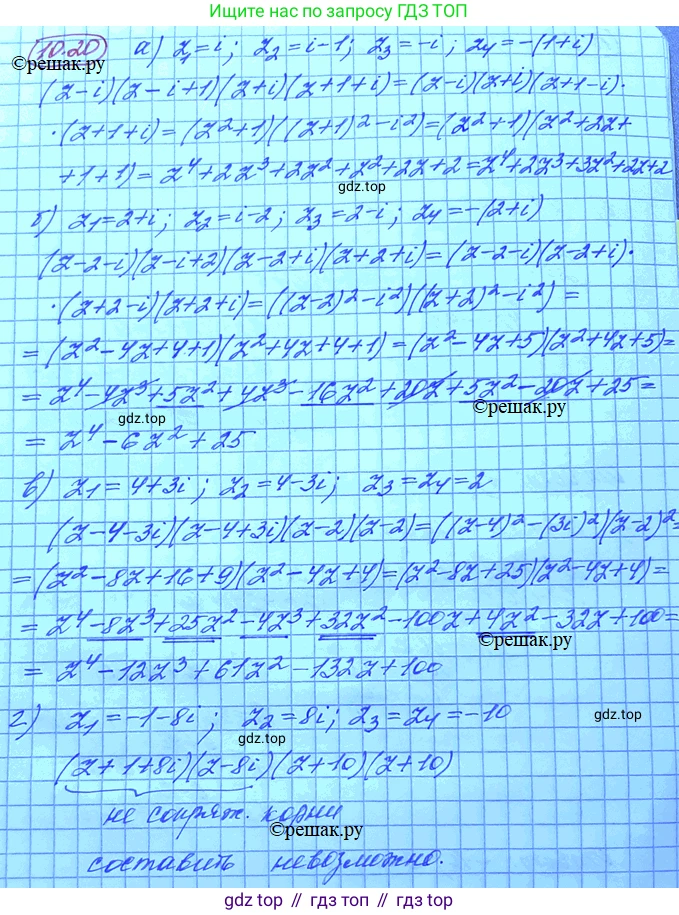 Ищите в поисковиках по запросу ГДЗ ТОП
10.20 а) z₁=i; z₂=i-1; z₃=-i; z₄=-(1+i)
©решак.ру
(z-i)(z-i+1)(z+i)(z+1+i)=(z-i)(z+i)(z+1-i)·
·(z+1+i)=(z²+1)((z+1)²-i²)=(z²+1)(z²+2z+
+1+1)= z⁴+2z³+2z²+z²+2z+2=z⁴+2z³+3z²+2z+2
gdz.top
б) z₁=2+i; z₂=i-2; z₃=2-i; z₄=-(2+i)
(z-2-i)(z-i+2)(z-2+i)(z+2+i)=(z-2-i)(z-2+i)·
·(z+2-i)(z+2+i)=((z-2)²-i²)((z+2)²-i²)=
=(z²-4z+4+1)(z²+4z+4+1)=(z²-4z+5)(z²+4z+5)=
= z⁴-4z³+5z²+4z³-16z²+20z+5z²-20z+25=
©решак.ру
gdz.top
= z⁴-6z²+25
в) z₁=4+3i; z₂=4-3i; z₃=z₄=2
(z-4-3i)(z-4+3i)(z-2)(z-2)=((z-4)²-(3i)²)(z-2)²=
=(z²-8z+16+9)(z²-4z+4)=(z²-8z+25)(z²-4z+4)=
= z⁴-8z³+25z²-4z³+32z²-100z+4z²-32z+100=
©решак.ру
= z⁴-12z³+61z²-132z+100
г) z₁=-1-8i; z₂=8i; z₃=z₄=-10
gdz.top
(z+1+8i)(z-8i)(z+10)(z+10)
не сопряж. корни
©решак.ру
составить невозможно.
gdz.top // gdz.top // gdz.top // gdz.top // gdz.top